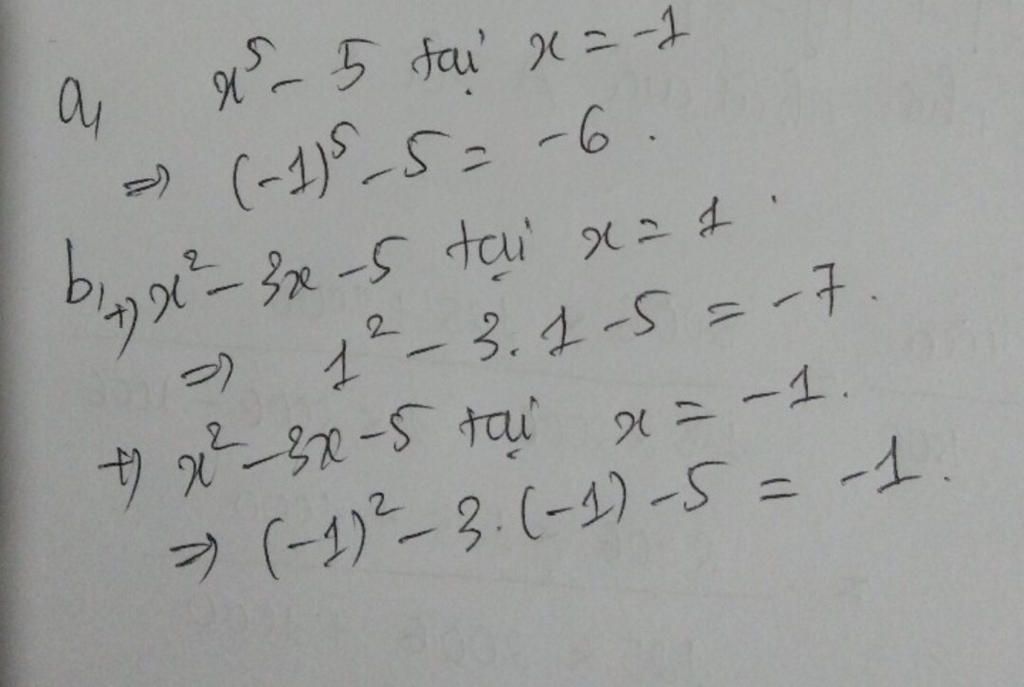 a, x⁵ - 5 tại x = -1
⇒ (-1)⁵ - 5 = -6.
b, +) x² - 3x - 5 tại x = 1.
⇒ 1² - 3.1 - 5 = -7.
+) x² - 3x - 5 tại x = -1.
⇒ (-1)² - 3.(-1) - 5 = -1.